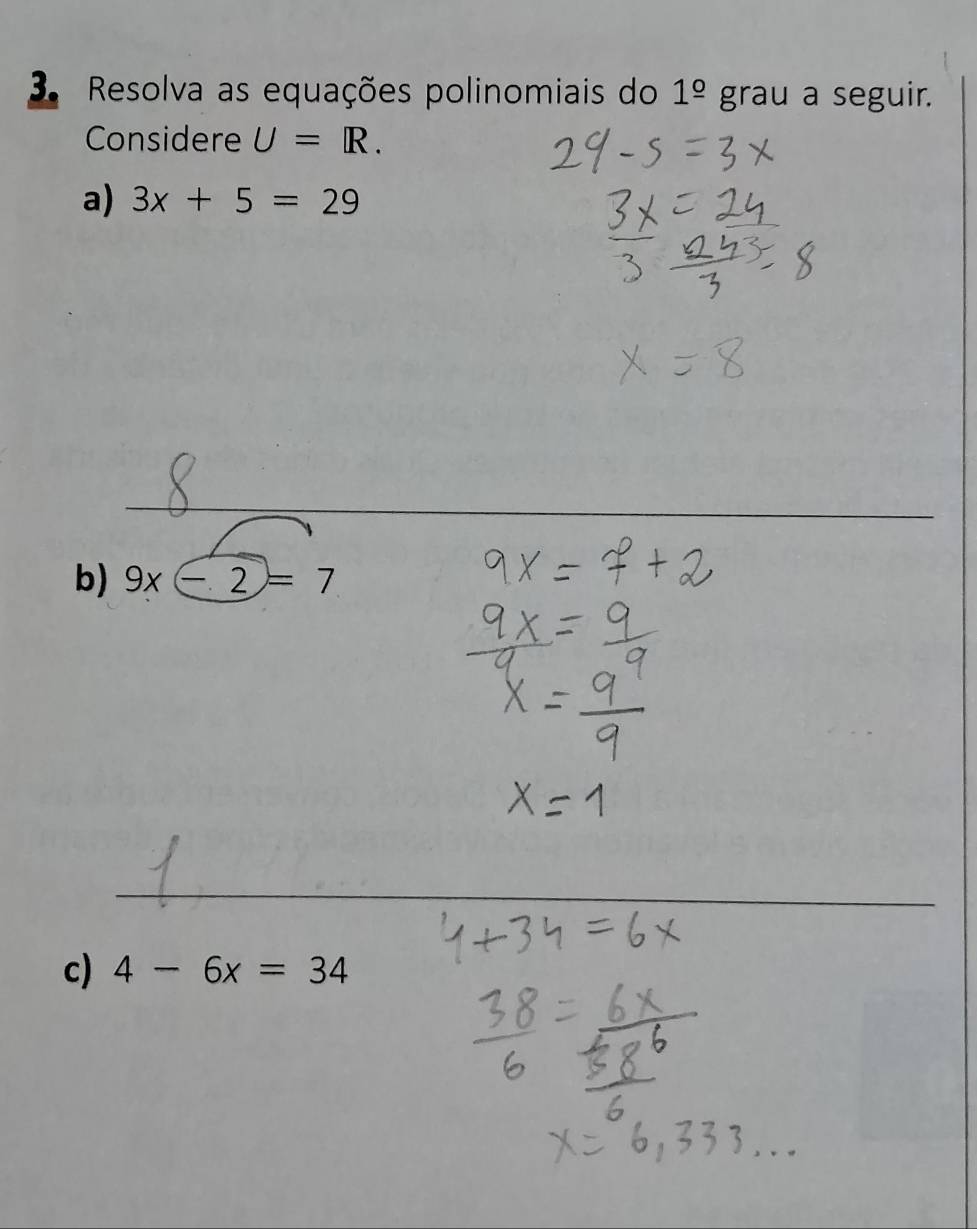 3. Resolva as equações polinomiais do 1º grau a seguir.
Considere U = ℝ.
29 - 5 = 3x
a) 3x + 5 = 29
3x = 24
3 243 = 8
3
x = 8
8
b) 9x - 2 = 7
9x = 7 + 2
9x = 9
9 9
x = 9
9
x = 1
1
4 + 34 = 6x
c) 4 - 6x = 34
38 = 6x
6 6
38
6
x = 6,333...